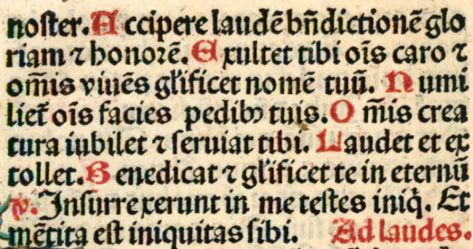 noſter. Accipere laudē bñdictionē glo
riam ⁊ honorē. Exultet tibi oīs caro ⁊
om̄is viuēs gl̄ificet nomē tuū. Numi
liet̄ oīs facies pedibꝫ tuis. Om̄is crea
tura iubilet ⁊ ſeruiat tibi. Laudet et ex
tollet. Benedicat ⁊ gl̄ificet te in eternū
℣. Inſurrexerunt in me teſtes iniq̄. Et
mētita eſt iniquitas ſibi. Ad laudes.